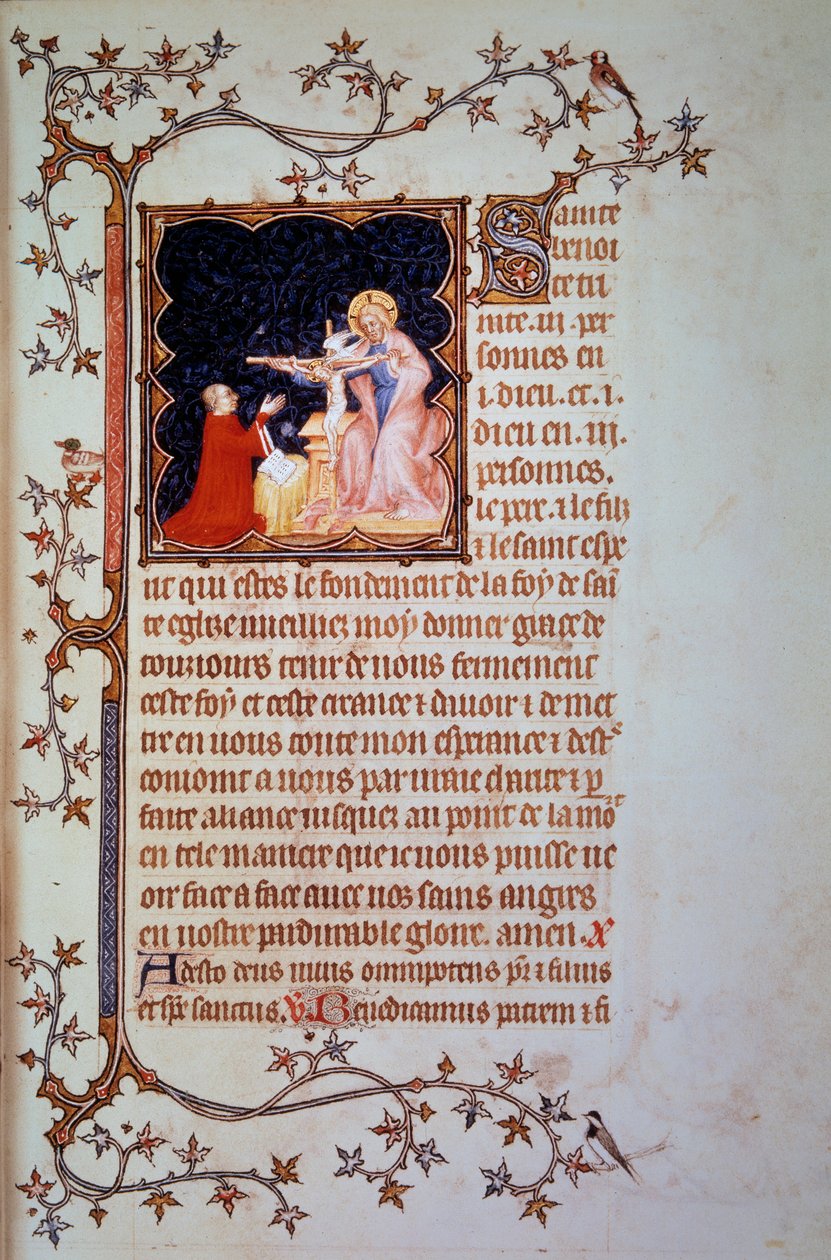 Sainte
benoi
te tri
nite .iij. per
sonnes en
.i. dieu. et .i.
dieu en .iij.
personnes.
le pere. ⁊ le filz
⁊ le saint espe
rit qui estes le fondement de la foy de sai͞
te eglize vueilliez moy donner grace de
touziours tenir de vous fermement
ceste foy et ceste creance ⁊ dauoir ⁊ de met
tre en vous toute mon esperance ⁊ destr͛
conioint a vous par uraie charite ⁊ p̱
faite aliance iusquez au point de la mort
en tele maniere que ie vous puisse ve
oir face a face auec vos sains angles
en vostre pardurable gloire. amen. X
Adesto deus unus omnipotens pr̃ ⁊ filius
et sp̃c sanctus. ℣. Benedicamus patrem ⁊ fi